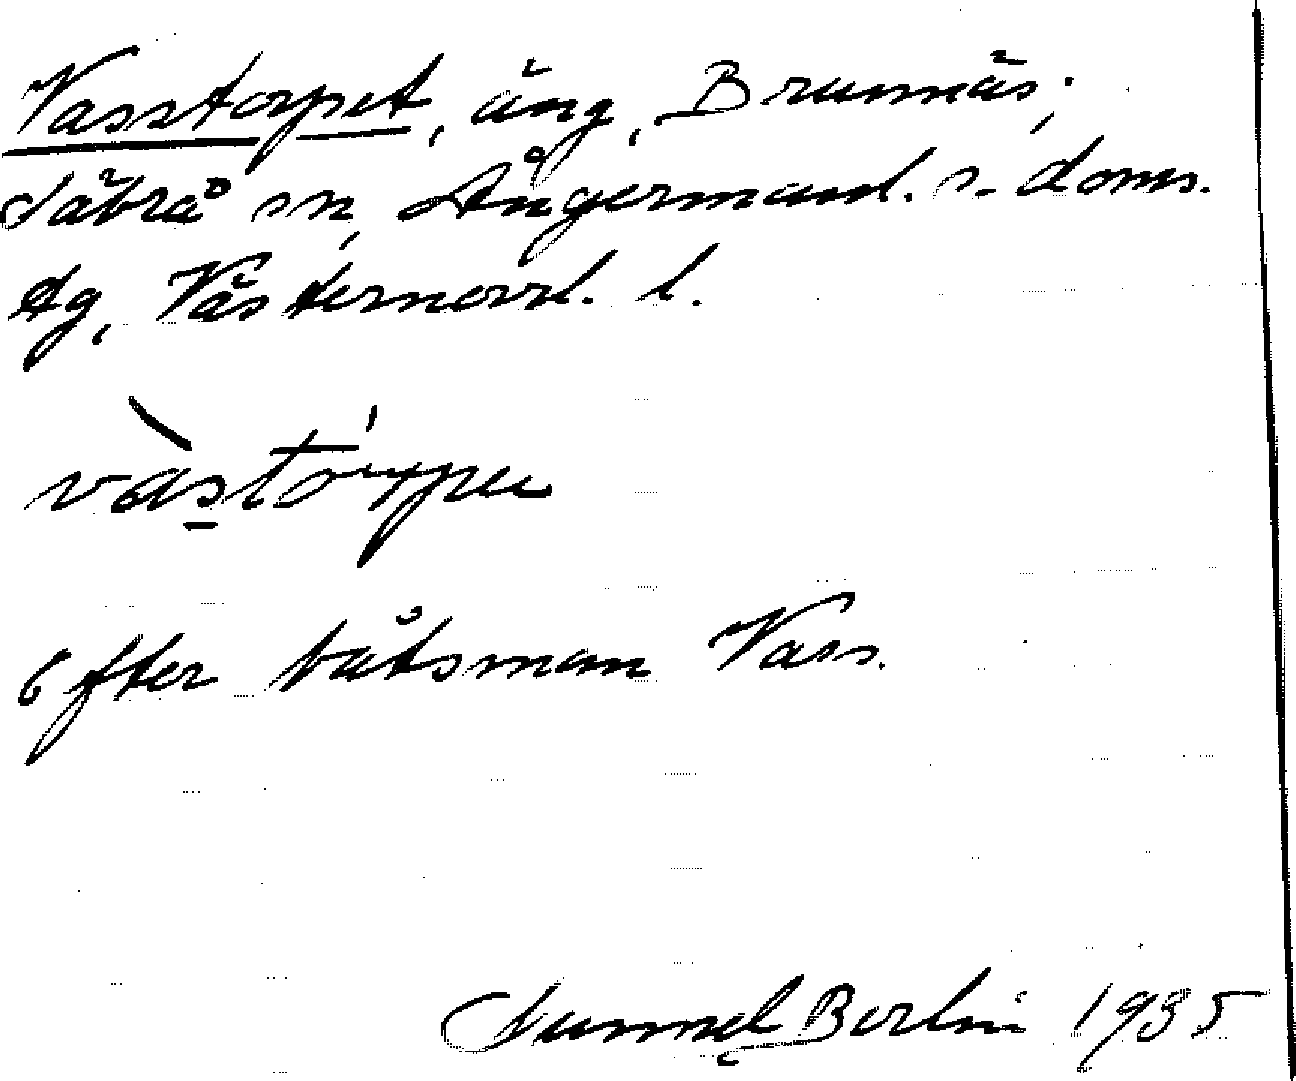 Vasstorpet, äng, Brunnäs,
Säbrå sn, Ångermanl. s. doms.
tg, Västernorrl. l.
vàstórpu
efter båtsman Vass.
Gunnel Berlin 1935